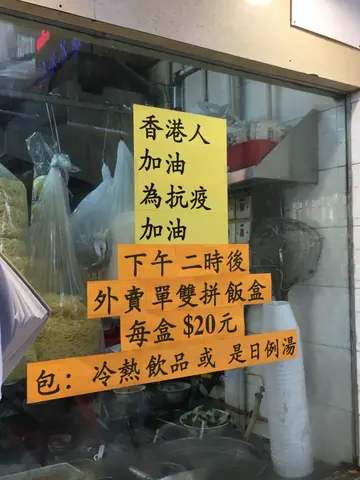 香港人
加油
為抗疫
加油
下午二時後
外賣單雙拼飯盒
每盒 $20元
包：冷熱飲品或 是日例湯